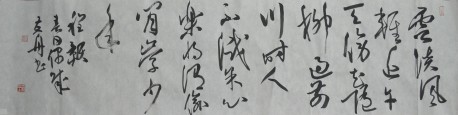 雲淡風
輕近午
天傍花随
柳過前
川时人
不識余心
樂将谓偷
閒学少
年
程颢
春日偶成
书